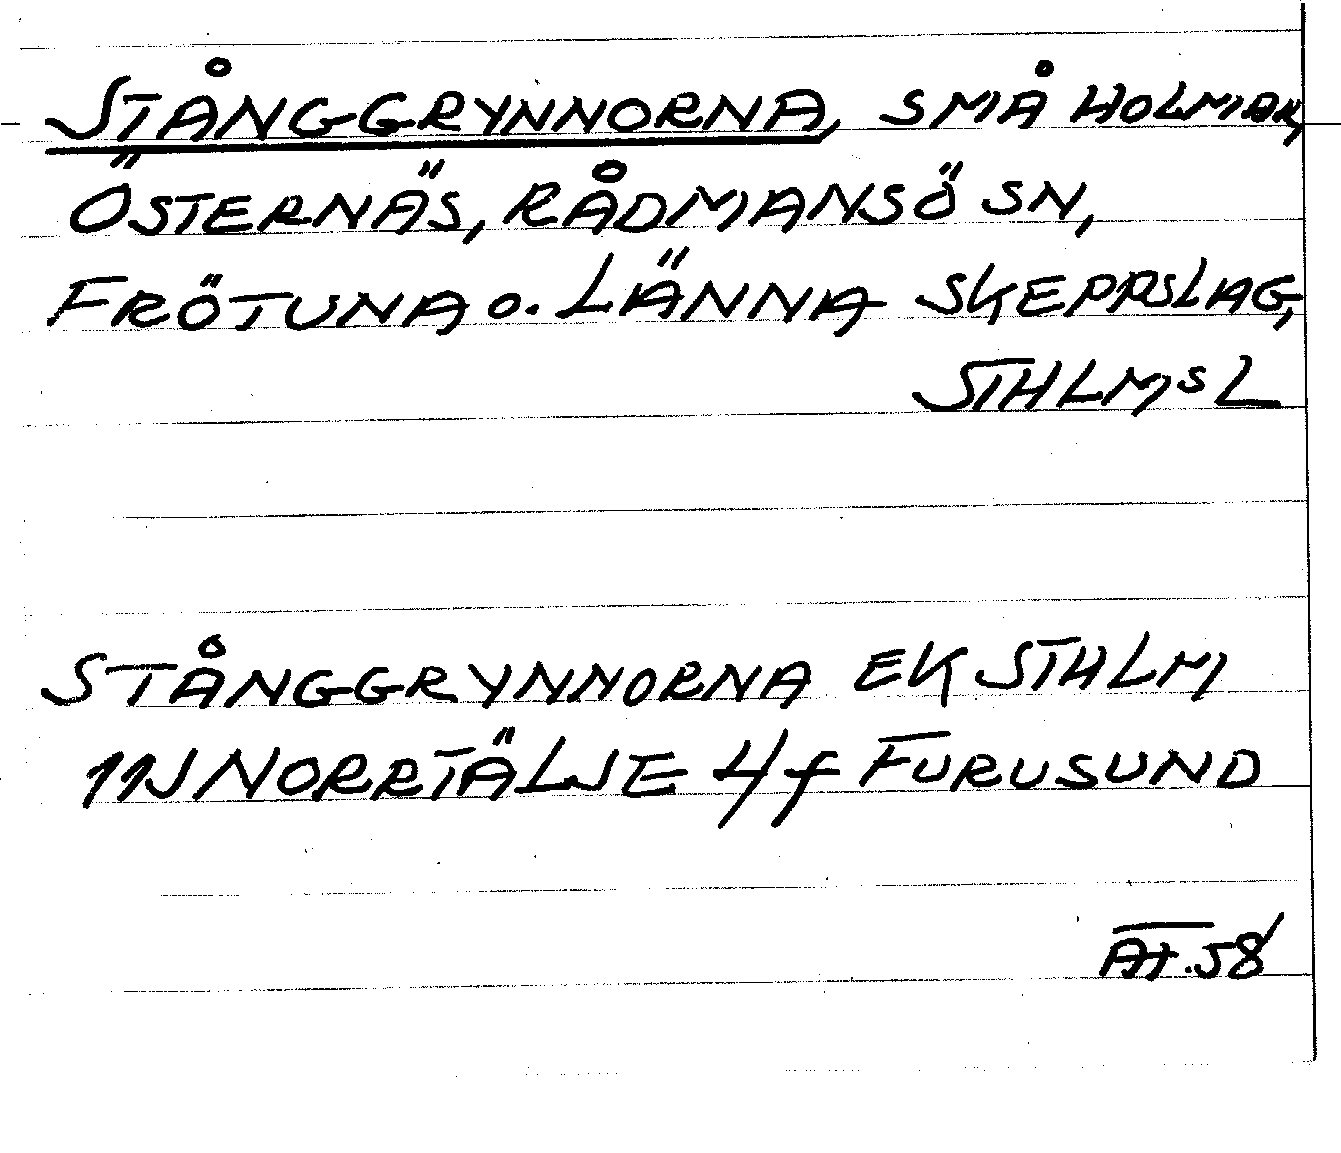 STÅNGGRYNNORNA, SMÅ HOLMAR,
ÖSTERNÄS, RÅDMANSÖ SN,
FRÖTUNA O. LÄNNA SKEPPSLAG,
STHLMS L
STÅNGGRYNNORNA EK STHLM
11J NORRTÄLJE 4f FURUSUND
58